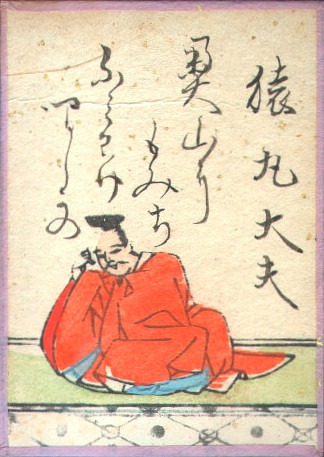 猿丸大夫
奥山に
もみち
ふみわけ
なくしかの